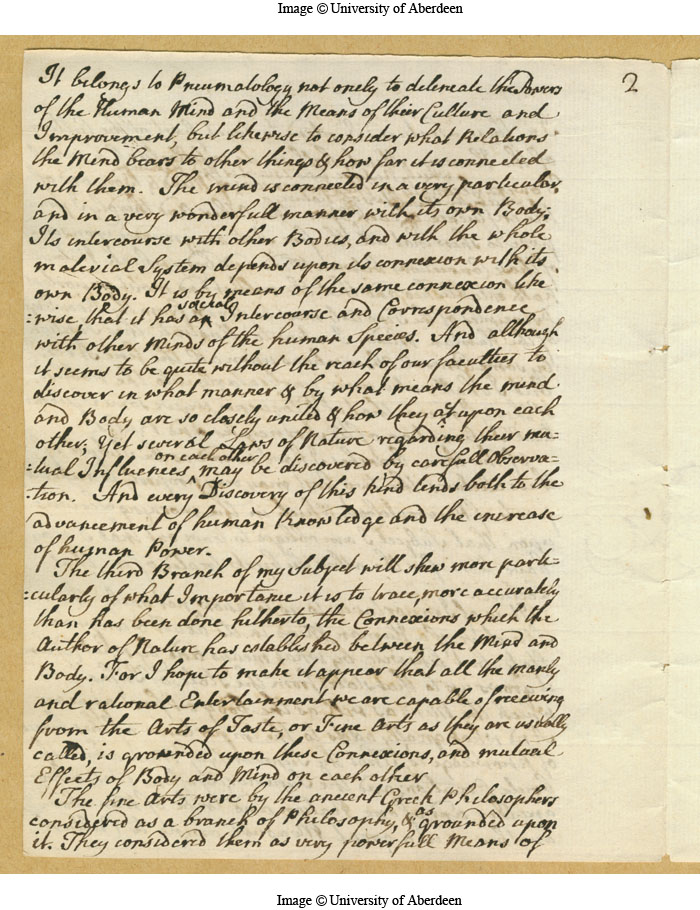 Image © University of Aberdeen
2
It belongs to Pneumatology not onely to delineate the Powers
of the Human Mind and the Means of their Culture and
Improvement, but likewise to consider what Relations
the Mind bears to other things & how far it is connected
with them. The mind is connected in a very particular
and in a very wonderfull manner with its own Body;
Its intercourse with other Bodies, and with the whole
material System depends upon its connexion with its
own Body. It is by means of the same connexion like
social
=wise, that it has an Intercourse and Correspondence
with other Minds of the human Species. And although
it seems to be quite without the reach of our faculties to
discover in what manner & by what means the mind
and Body are so closely united & how they act upon each
other; Yet several Laws of Nature regarding their mu=
on each other
=tual Influences, may be discovered by carefull Observa=
=tion. And every Discovery of this kind tends both to the
advancement of human Knowledge and the increase
of human Power.
The third Branch of my Subject will shew more parti=
=cularly of what Importance it is to trace, more accurately
than has been done hitherto, the Connexions which the
Author of Nature has established between the Mind and
Body. For I hope to make it appear that all the manly
and rational Entertainment we are capable of receiving
from the Arts of Taste, or Fine Arts as they are usually
called, is grounded upon these Connexions, and mutual
Effects of Body and Mind on each other
The fine Arts were by the ancient Greek Philosophers
as
considered as a branch of Philosophy, & grounded upon
it. They considered them as very powerfull Means of
Image © University of Aberdeen